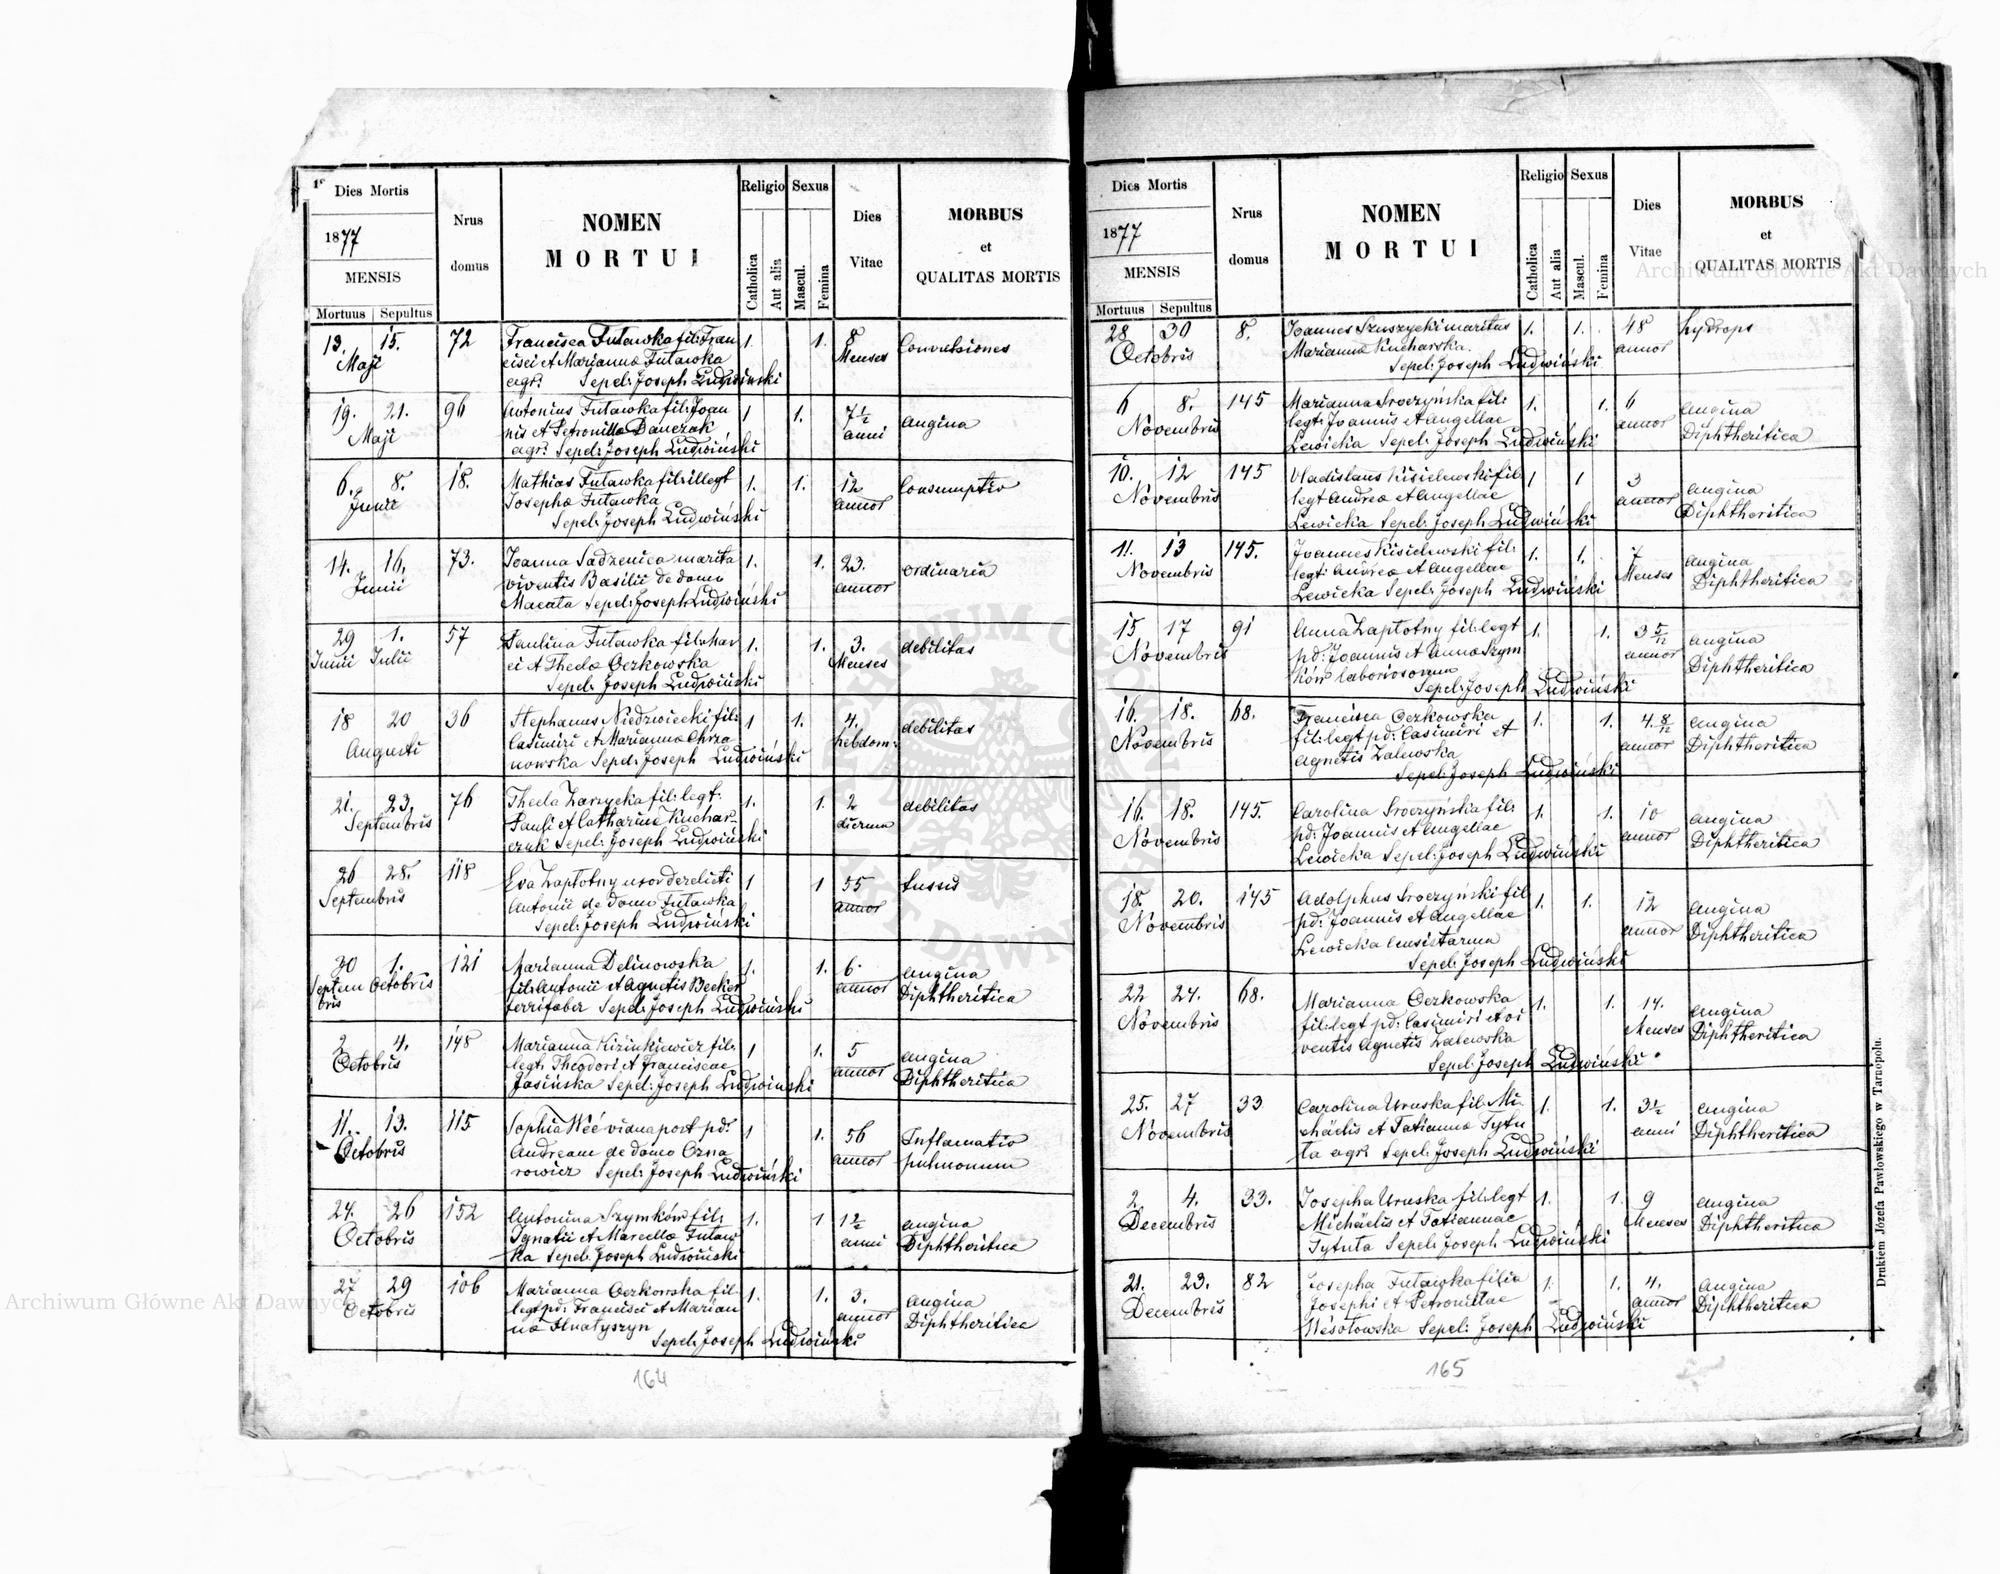 Dies Mortis
1877
MENSIS
Mortuus Sepultus
Nrus domus
NOMEN
MORTUI
Religio
Catholica
Aut alia
Sexus
Mascul.
Femina
Dies
Vitae
MORBUS
et
QUALITAS MORTIS
13. 15. 72 Francisca Futawka fil: Fran 1. 1. 8 Convulsiones
Maji cisci et Marianna Futawka Menses
agr: Sepel: Joseph Ludwiński
19. 21. 96 Antonius Futawka fil: Joan 1 1. 7½ angina
Maji nis et Petronilla Danczak anni
agr: Sepel: Joseph Ludwiński
6. 8. 18. Mathias Futawka fil: illegt 1. 1. 12 Consumptio
Junii Josepha Futawka annor
Sepel: Joseph Ludwiński
14. 16. 73. Joanna Sadzenica marita 1. 1. 23. ordinaria
Junii viventis Basilii de domo annor
Macata Sepel: Joseph Ludwiński
29 1. 57 Paulina Futawka fil: Mar 1. 1. 3. debilitas
Junii Julii ci et Thecla Oczkowska Menses
Sepel: Joseph Ludwiński
18 20 36 Stephanus Niedzwiecki fil: 1 1. 4. debilitas
Augusti Casimiri et Marianna Chrza hebdom:
nowska Sepel: Joseph Ludwiński
21. 23. 76 Thecla Zarzycka fil: legt: 1. 1. 2 debilitas
Septembris Pauli et Catharina Kuchar- dierum
czuk Sepel: Joseph Ludwiński
26 28. 118 Eva Zaplotny uxor derelicti 1 1 55 tussis
Septembris Antonii de domo Futawka annor
Sepel: Joseph Ludwiński
30 1. 121 Marianna Delinowska 1. 1. 6. angina
Septem Octobris fil: Antonii et Agnetis Becker annor Diphtheritica
bris ferrifaber Sepel: Joseph Ludwiński
2 4. 148 Marianna Kizinkiewicz fil: 1 1. 5 angina
Octobris legt: Theodori et Franciscae annor Diphtheritica
Jasińska Sepel: Joseph Ludwiński
11. 13. 115 Sophia Wéé vidua post pd: 1 1. 56 Inflamatio
Octobris Andream de domo Ozna annor pulmonum
rowicz Sepel: Joseph Ludwiński
24. 26 152 Antonina Szymków fil: 1. 1 1½ angina
Octobris Ignatii et Marcella Futaw anni Diphtheritica
ka Sepel: Joseph Ludwiński
27 29 106 Marianna Oczkowska fil- 1. 1. 3. angina
Octobris legt pd: Francisci et Marian annor Diphtheritica
na Hnatyszyn
Sepel: Joseph Ludwiński
164
Dies Mortis
1877
MENSIS
Mortuus Sepultus
Nrus domus
NOMEN
MORTUI
Religio
Catholica
Aut alia
Sexus
Mascul.
Femina
Dies
Vitae
MORBUS
et
QUALITAS MORTIS
28 30 8. Joannes Szuszycki maritus 1. 1. 48 hydrops
Octobris Marianna Kucharska. annor
Sepel: Joseph Ludwiński
6 8. 145 Marianna Sroczyńska fil: 1. 1. 6 angina
Novembris legt: Joannis et Angellae annor Diphtheritica
Lewicka Sepel: Joseph Ludwiński
10. 12 145 Vladislaus Kisielewski fil: 1 1 3 angina
Novembris legt Andrea et Angellae annor Diphtheritica
Lewicka Sepel: Joseph Ludwiński
11. 13 145. Joannes Kisielewski fil: 1. 1. 7 angina
Novembris legt: Andrea et Angellae Menses Diphtheritica
Lewicka Sepel: Joseph Ludwiński
15 17 91 Anna Zaplotny fil: legt 1. 1. 3 5/12 angina
Novembris pd: Joannis et Anna Szym annor Diphtheritica
ków laboriosorum
Sepel: Joseph Ludwiński
16. 18. 68. Francisca Oczkowska 1. 1. 4. 8/12 angina
Novembris fil: legt pd: Casimiri et annor Diphtheritica
Agnetis Zalewska
Sepel: Joseph Ludwiński
16. 18. 145. Carolina Sroczyńska fil: 1. 1. 10 angina
Novembris pd: Joannis et Angellae annor Diphtheritica
Lewicka Sepel: Joseph Ludwiński
18. 20. 145 Adolphus Sroczyński fil 1. 1. 12 angina
Novembris pd: Joannis et Angellae annor Diphtheritica
Lewicka
Sepel: Joseph Ludwiński
22 24. 68. Marianna Oczkowska 1. 1. 14. angina
Novembris fil: legt pd: Casimiri et vi Menses Diphtheritica
ventis Agnetis Zalewska
Sepel: Joseph Ludwiński
25. 27 33 Carolina Uruska fil: Mi- 1. 1. 3½ angina
Novembris chäelis et Tatianna Tytu anni Diphtheritica
ta agr: Sepel: Joseph Ludwiński
2 4. 33. Josepha Uruska fil: legt 1. 1. 9 angina
Decembris Michäelis et Tatiannae Menses Diphtheritica
Tytuta Sepel: Joseph Ludwiński
21. 23. 82 Josepha Futawka filia 1. 1. 4. angina
Decembris Josephi et Petronillae annor Diphtheritica
Wesołowska Sepel: Joseph Ludwiński
165
Drukiem Józefa Pawłowskiego w Tarnopolu.
Archiwum Główne Akt Dawnych
Archiwum Główne Akt Dawnych
ARCHIWUM GŁÓWNE AKT DAWNYCH